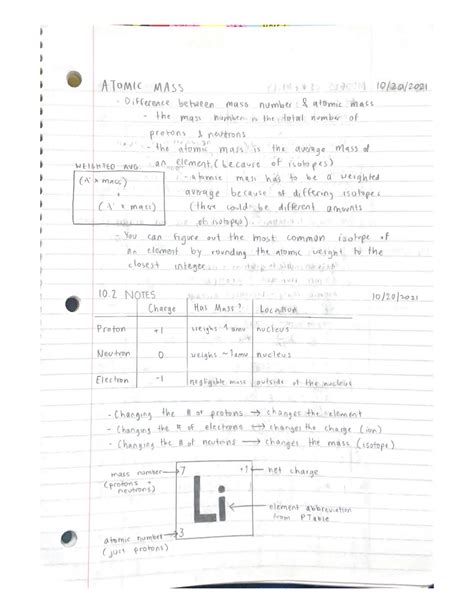 ATOMIC MASS 10/20/2021
- Difference between mass number & atomic mass
- the mass number is the total number of
protons & neutrons
- the atomic mass is the average mass of
an element (because of isotopes)
WEIGHTED AVG.
(A × mass)
+
(A × mass)
- atomic mass has to be a weighted
average because of differing isotopes
(there could be different amounts
of isotopes).
- You can figure out the most common isotope of
an element by rounding the atomic weight to the
closest integer.
10.2 NOTES 10/20/2021
Charge Has Mass? Location
Proton +1 weighs 1 amu nucleus
Neutron 0 weighs ~1 amu nucleus
Electron -1 negligible mass outside of the nucleus
- Changing the # of protons → changes the element
- Changing the # of electrons → changes the charge (ion)
- Changing the # of neutrons → changes the mass (isotope)
mass number 7 +1 net charge
(protons +
neutrons)
Li
element abbreviation
from PTable
atomic number 3
(just protons)